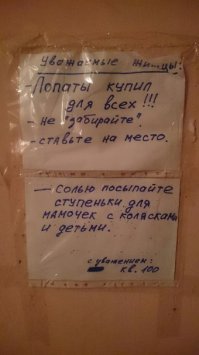 Уважаемые жильцы:
Лопаты купил
для всех !!!
- не "забирайте"
- ставьте на место.
— Солью посыпайте
ступеньки для
мамочек с колясками
и детьми.
с уважением:
кв. 100